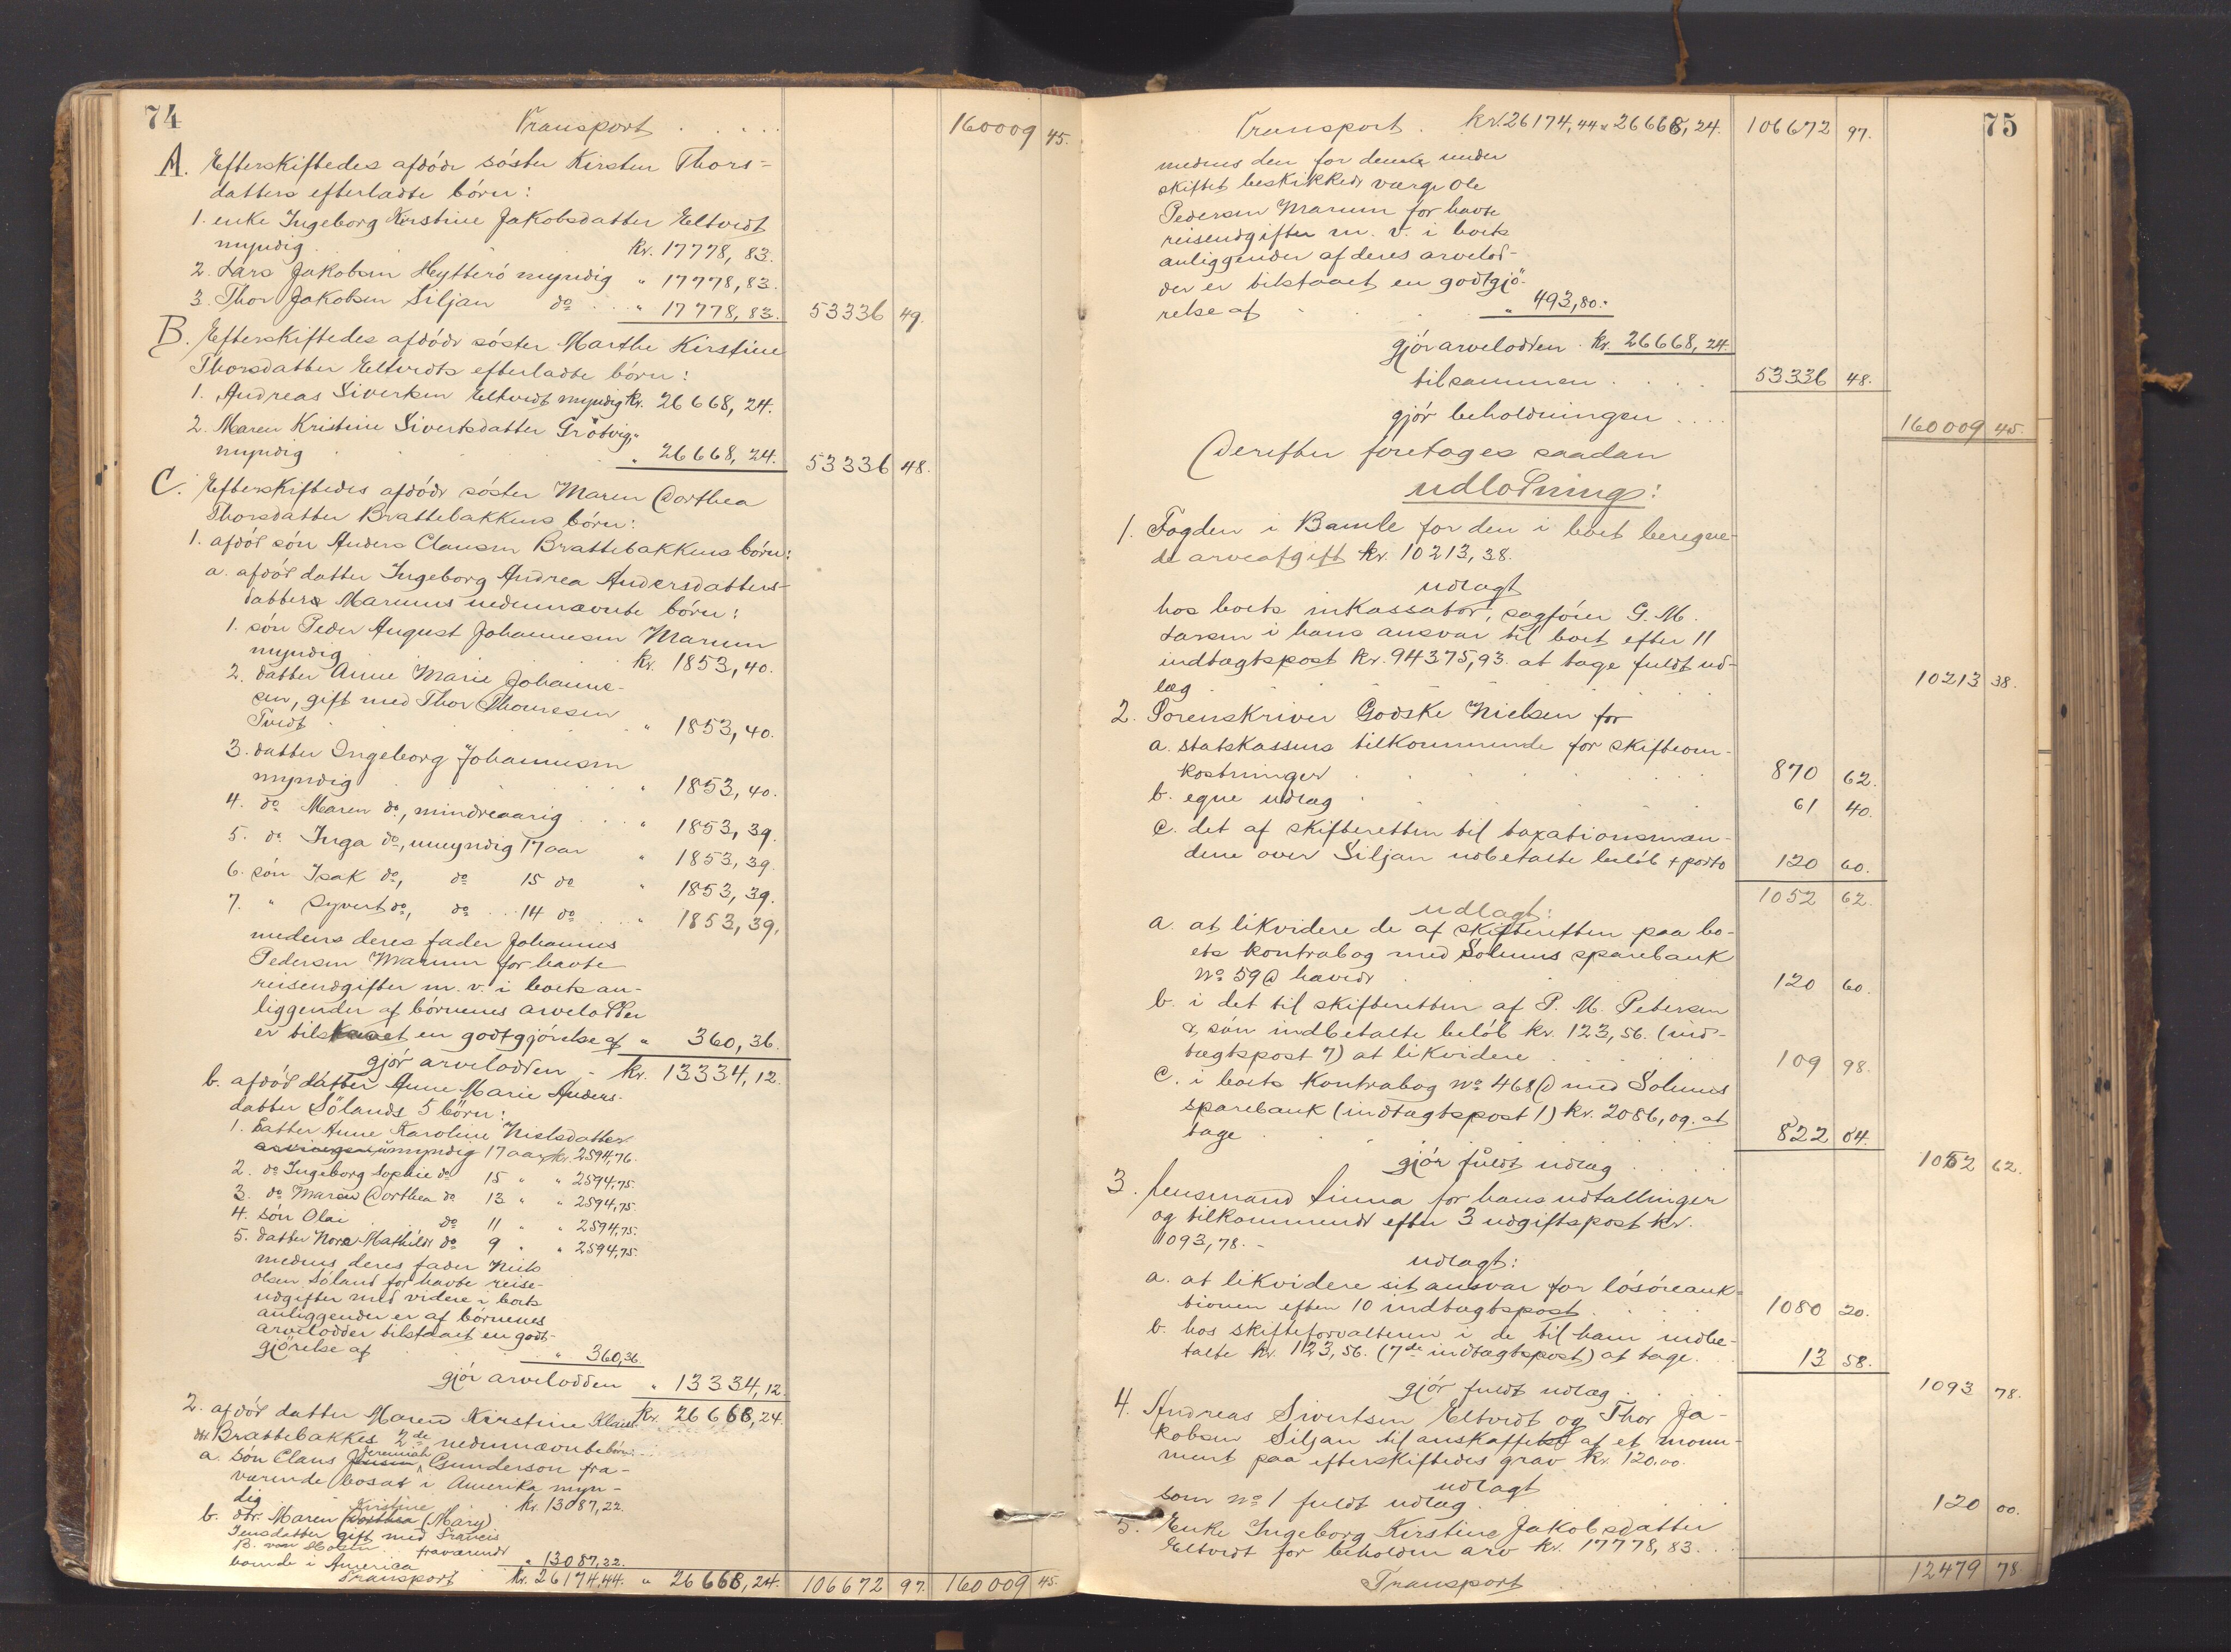 74
Transport . . . . . 160009 45.
A. Efterskiftedes afdøde søster Kirsten Thors-
datters efterladte børn:
1. enke Ingeborg Kirstine Jakobsdatter Eltvedt
myndig . kr. 17778, 83.
2. Lars Jakobsen Heytterø myndig " 17778, 83.
3. Thor Jakobsen Siljan do . . . " 17778, 83. 53336 49.
B. Efterskiftedes afdøde søster Marthe Kirstine
Thorsdatter Eltvedts efterladte børn:
1. Andreas Sivertsen Eltvedt myndig kr. 26668, 24.
2. Maren Kristine Sivertsdatter Grötvig,
myndig . . . " 26668, 24. 53336 48.
C. Efterskiftedes afdøde søster Maren Dorthea
Thorsdatter Brattebakkens børn:
1. afdød søn Anders Clausen Brattebakkens børn:
a. afdød datter Ingeborg Andrea Andersdatters-
datters Marums nedennævnte børn:
1. søn Peder August Johannesen Marum
myndig . kr. 1853, 40.
2. datter Anne Marie Johanne-
sen, gift med Thor Thoresen
Tvedt . . " 1853, 40.
3. datter Ingeborg Johannesen
myndig . . . " 1853, 40.
4. do Maren do, mindreaarig . . . " 1853, 39.
5. do Inga do, umyndig 17 aar " 1853, 39.
6. søn Isak do, do 15 do " 1853, 39.
7. " Syvert do, do . . 14 do . . . " 1853, 39.
medens deres fader Johannes
Pedersen Marum for havte
reiseudgifter m. v. i boets an-
liggender af børnenes arvelodder
er tilstaaet en godtgjørelse af " 360, 36.
gjør arvelodden - kr. 13334, 12.
b. afdød datter Anne Marie Anders-
datter Sölands 5 børn:
1. Datter Anne Karoline Nielsdatter
umyndig 17 aar kr. 2594,76.
2. do Ingeborg Sophie do 15 " " 2594,75.
3. do Maren Dorthea do 13 " " 2594,75.
4. søn Olai . do 11 " " 2594,75.
5. datter Nora Mathilde do 9 " " 2594,75.
medens deres fader Niels
Olsen Söland for havte reise-
udgifter med videre i boets
anliggender er af børnenes
arvelodder tilstaaet en godt-
gjörelse af . . " 360,36.
gjør arvelodden " 13334,12.
kr. 26668,24.
2. afdød datter Maren Kirstine Klaus
dtr Brattebakkes 2de nedennævnte børn:
a. søn Claus Jensen Jeremiah Gunderson fra-
værende bosat i Amerika myn-
dig . kr. 13087,22
b. dtr. Maren Dorthea Kristine (Mary)
Jensdatter gift med Francis
B. von fraværende
boende i America " 13087,22.
Transport kr. 26174,44. " 26668,24. 106672 97. 160009 45.
75
Transport . kr. 26174,44 " 26668,24. 106672 97.
medens den for denne under
skiftet beskikkede værge Ole
Pedersen Marum for havte
reiseudgifter m. v. i boets
anliggender af deres arvelod-
der er tilstaaet en godtgjö-
relse af . . " 493,80.
gjør arvelodden . kr. 26668,24.
tilsammen . . . . 53336 48.
gjør beholdningen . . . . 160009 45.
Derefter foretages saadan
udlodning:
1. Fogden i Bamle for den i boet beregne-
de arveafgift kr. 10213,38.
udlagt
hos boets inkassator, sagfører G. M.
Larsen i hans ansvar til boet efter 11
indtægtspost kr. 94375,93. at tage fuldt ud-
læg . . . . . . 10213 38.
2. Sorenskriver Godske Nielsen for
a. statskassens tilkommende for skifteom-
kostninger . . . . . 870 62.
b. egne udlæg . . . . . 61 40.
c. det af skifteretten til taxationsmæn-
dene over Siljan udbetalte beløb + porto 120 60.
1052 62.
udlagt:
a. at likvidere de af skifteretten paa bo-
ets kontrabog med Solums sparebank
No 59 D hævede . . . 120 60.
b. i det til skifteretten af P. M. Petersen
& søn indbetalte beløb kr. 123,56. (ind-
tægtspost 7) at likvidere . . . . 109 98.
c. i boets kontrabog No 468 D med Solums
sparebank (indtægtspost 1) kr. 2086,09. at
tage . . . . . 822 04.
gjør fuldt udlæg . . . . 1052 62.
3. Lensmand Linna for hans udtællinger
og tilkommende efter 3 udgiftspost kr.
1093,78. -
udlagt:
a. at likvidere sit ansvar for løsøreauk-
tionen efter 10 indtægtspost . . . 1080 20.
b. hos skifteforvalteren i de til ham indbe-
talte kr. 123,56. (7de indtægtspost) at tage . . 13 58.
gjør fuldt udlæg . . . 1093 78.
4. Andreas Sivertsen Eltvedt og Thor Ja-
kobsen Siljan til anskaffelse af et monu-
ment paa efterskiftedes grav kr. 120.00.
udlagt
som No 1 fuldt udlæg . . . . 120 00.
5. Enke Ingeborg Kirstine Jakobsdatter
Eltvedt for beholden arv kr. 17778,83. . .
Transport . . . 12479 78